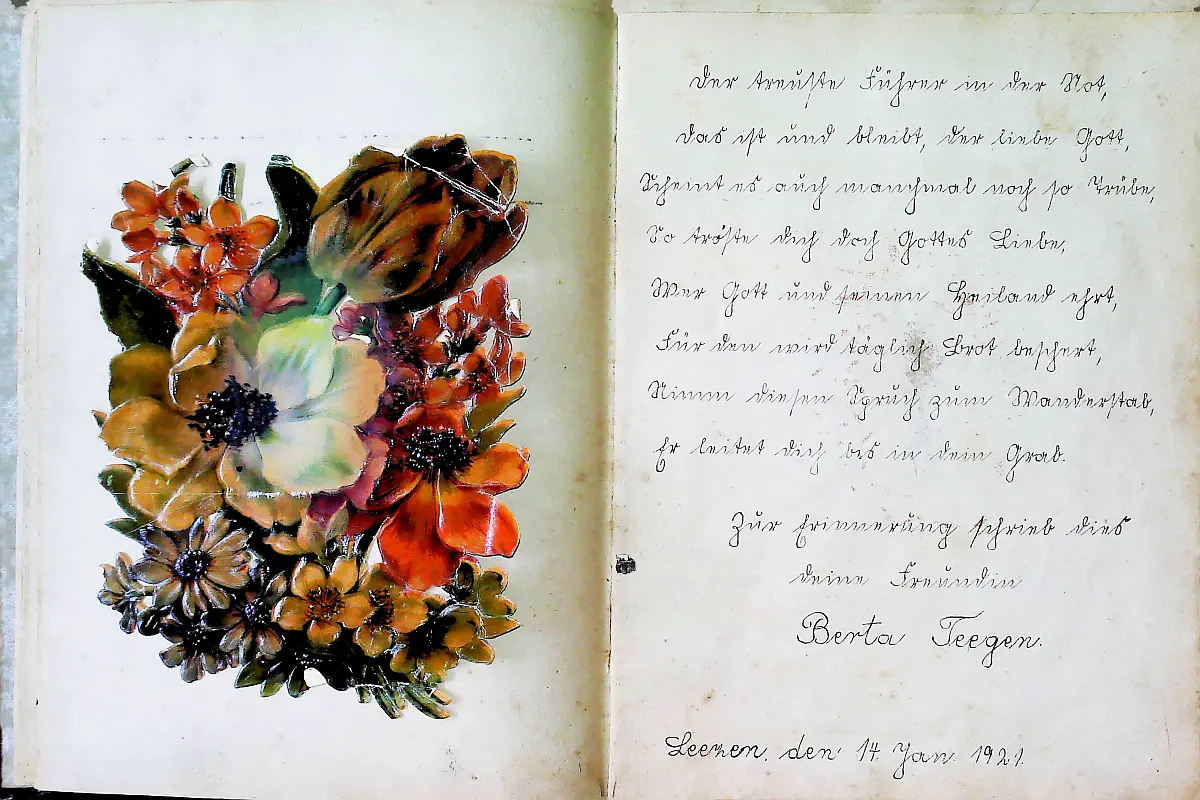 Der treuste Führer in der Not,
das ist und bleibt, der liebe Gott,
Scheint es auch manchmal noch so Trübe,
So tröste dich doch Gottes Liebe,
Wer Gott und seinen Heiland ehrt,
Für den wird täglich Brot beschert,
Nimm diesen Spruch zum Wanderstab,
Er leitet dich bis in dein Grab.
Zur Erinnerung schrieb dies
deine Freundin
Berta Teegen.
Leezen, den 14. Jan. 1921.